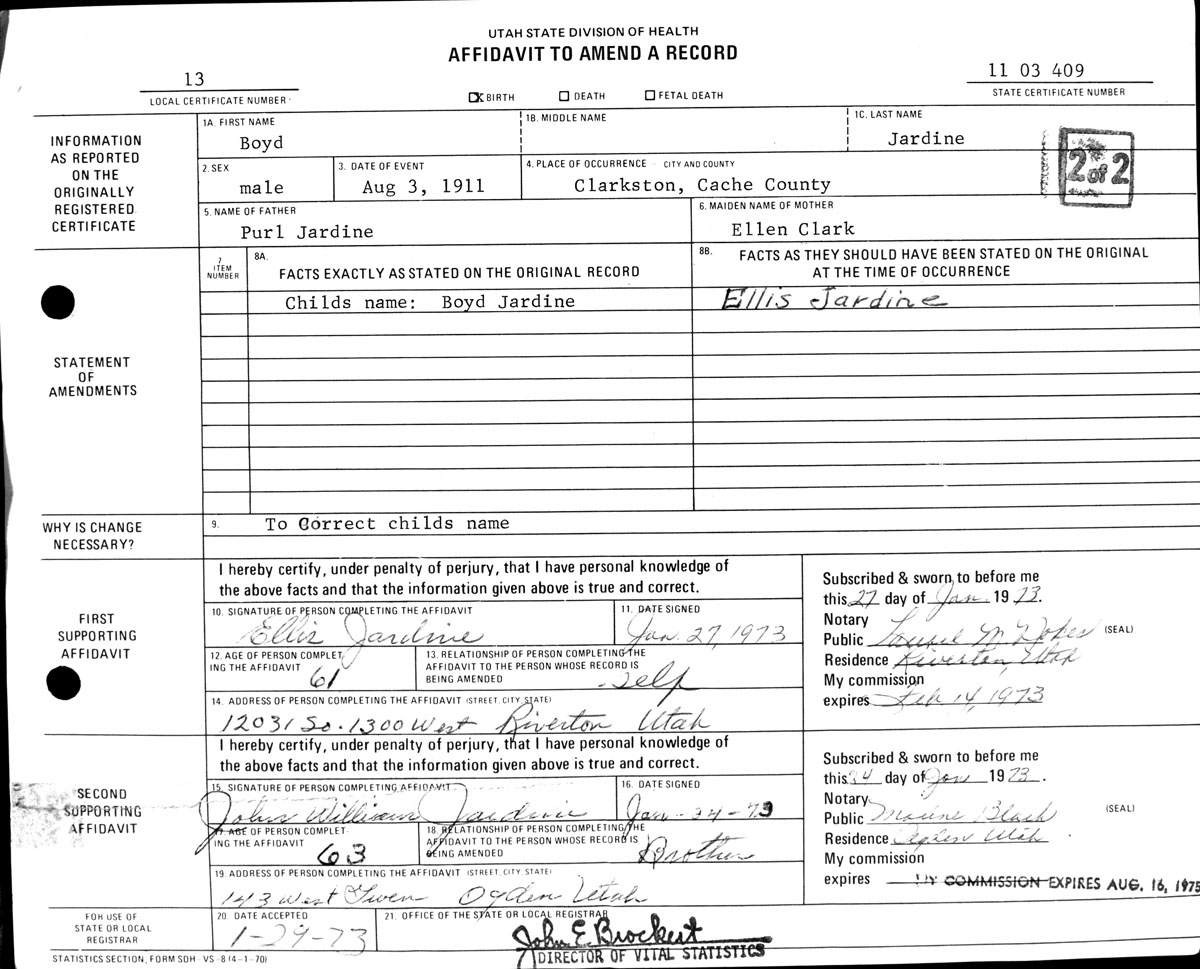 UTAH STATE DIVISION OF HEALTH
AFFIDAVIT TO AMEND A RECORD
13
LOCAL CERTIFICATE NUMBER
X BIRTH DEATH FETAL DEATH
11 03 409
STATE CERTIFICATE NUMBER
INFORMATION
AS REPORTED
ON THE
ORIGINALLY
REGISTERED
CERTIFICATE
1A. FIRST NAME
Boyd
1B. MIDDLE NAME
1C. LAST NAME
Jardine
2 of 2
2. SEX
male
3. DATE OF EVENT
Aug 3, 1911
4. PLACE OF OCCURRENCE CITY AND COUNTY
Clarkston, Cache County
5. NAME OF FATHER
Purl Jardine
6. MAIDEN NAME OF MOTHER
Ellen Clark
STATEMENT
OF
AMENDMENTS
7
ITEM
NUMBER
8A.
FACTS EXACTLY AS STATED ON THE ORIGINAL RECORD
8B.
FACTS AS THEY SHOULD HAVE BEEN STATED ON THE ORIGINAL
AT THE TIME OF OCCURRENCE
Childs name: Boyd Jardine
Ellis Jardine
WHY IS CHANGE
NECESSARY?
9.
To Correct childs name
FIRST
SUPPORTING
AFFIDAVIT
I hereby certify, under penalty of perjury, that I have personal knowledge of
the above facts and that the information given above is true and correct.
10. SIGNATURE OF PERSON COMPLETING THE AFFIDAVIT
Ellis Jardine
11. DATE SIGNED
Jan. 27, 1973
12. AGE OF PERSON COMPLET-
ING THE AFFIDAVIT
61
13. RELATIONSHIP OF PERSON COMPLETING THE
AFFIDAVIT TO THE PERSON WHOSE RECORD IS
BEING AMENDED
Self
14. ADDRESS OF PERSON COMPLETING THE AFFIDAVIT (STREET, CITY, STATE)
12031 So. 1300 West Riverton Utah
Subscribed & sworn to before me
this 27 day of Jan. 1973.
Notary
Public M
(SEAL)
Residence Riverton, Utah
My commission
expires Feb 14, 1973
SECOND
SUPPORTING
AFFIDAVIT
I hereby certify, under penalty of perjury, that I have personal knowledge of
the above facts and that the information given above is true and correct.
15. SIGNATURE OF PERSON COMPLETING AFFIDAVIT
John William Jardine
16. DATE SIGNED
Jan-24-73
17 AGE OF PERSON COMPLET-
ING THE AFFIDAVIT
63
18. RELATIONSHIP OF PERSON COMPLETING THE
AFFIDAVIT TO THE PERSON WHOSE RECORD IS
BEING AMENDED
Brother
19. ADDRESS OF PERSON COMPLETING THE AFFIDAVIT (STREET, CITY, STATE)
143 West Ogden Utah
Subscribed & sworn to before me
this 24 day of Jan 1973.
Notary
Public
(SEAL)
Residence Ogden Utah
My commission
expires MY COMMISSION EXPIRES AUG. 16, 1975
FOR USE OF
STATE OR LOCAL
REGISTRAR
20. DATE ACCEPTED
1-29-73
21. OFFICE OF THE STATE OR LOCAL REGISTRAR
John E Brockert
DIRECTOR OF VITAL STATISTICS
STATISTICS SECTION, FORM SDH-VS-8 (4-1-70)